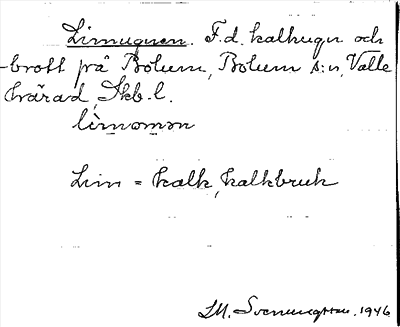 Limugnen. F.d. kalkugn och
-brott på Bolum, Bolum s:n, Valle
härad, Skb.l.
lìmomən
Lim = kalk, kalkbruk
1946